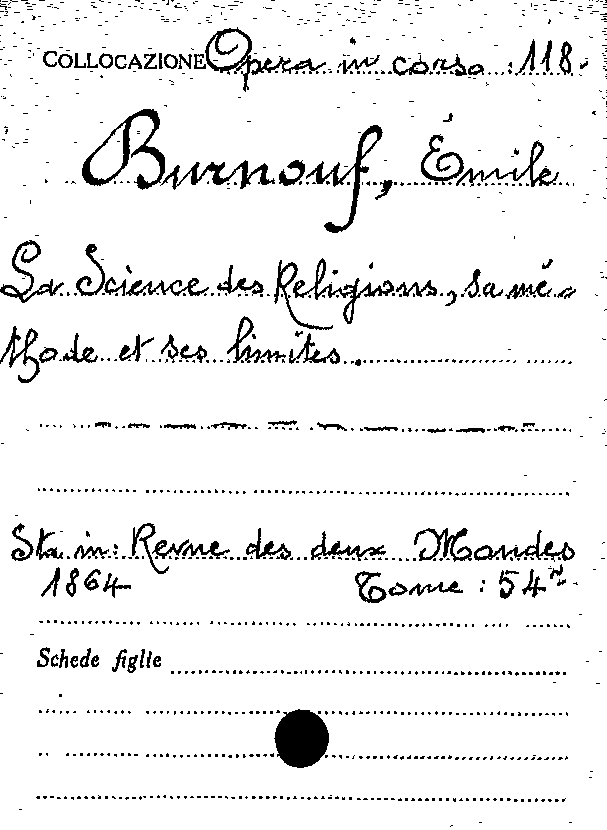 COLLOCAZIONE Opera in corso .118.
Burnouf, Émile
La Science des Religions, sa mé-
thode et ses limites.
Sta in: Revue des deux Mondes
1864 Tome : 54
Schede figlie